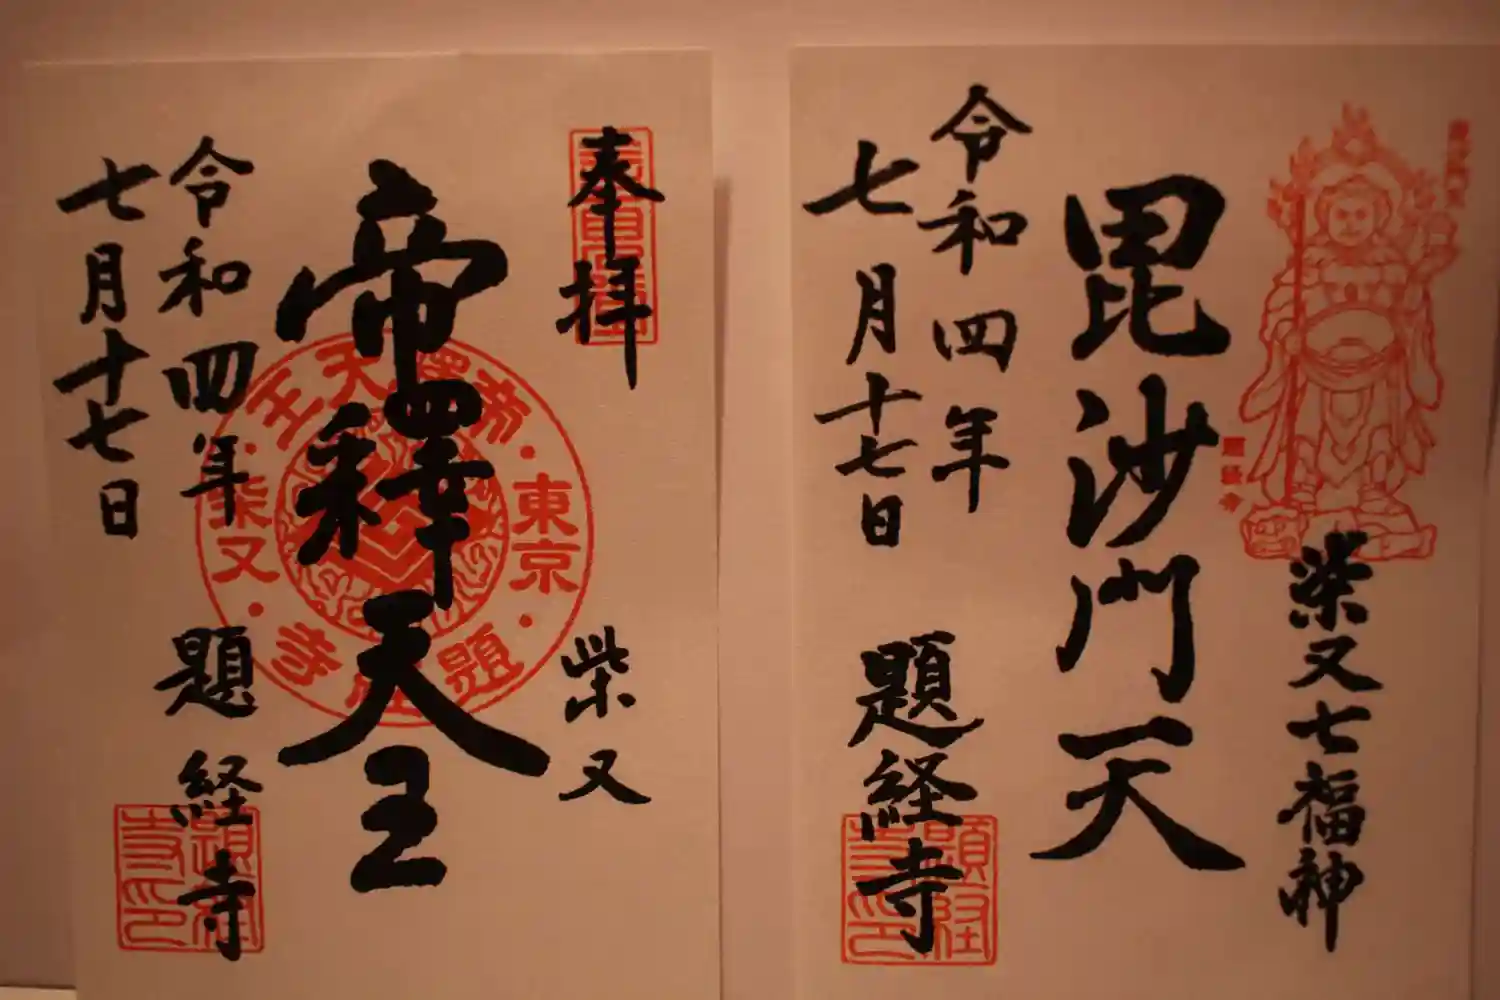 奉拝
柴又
帝釋天王
令和四年
七月十七日
題経寺
東京
柴又
帝釋天王
題経寺
題経寺印
柴又七福神
毘沙門天
令和四年
七月十七日
題経寺
題経寺印